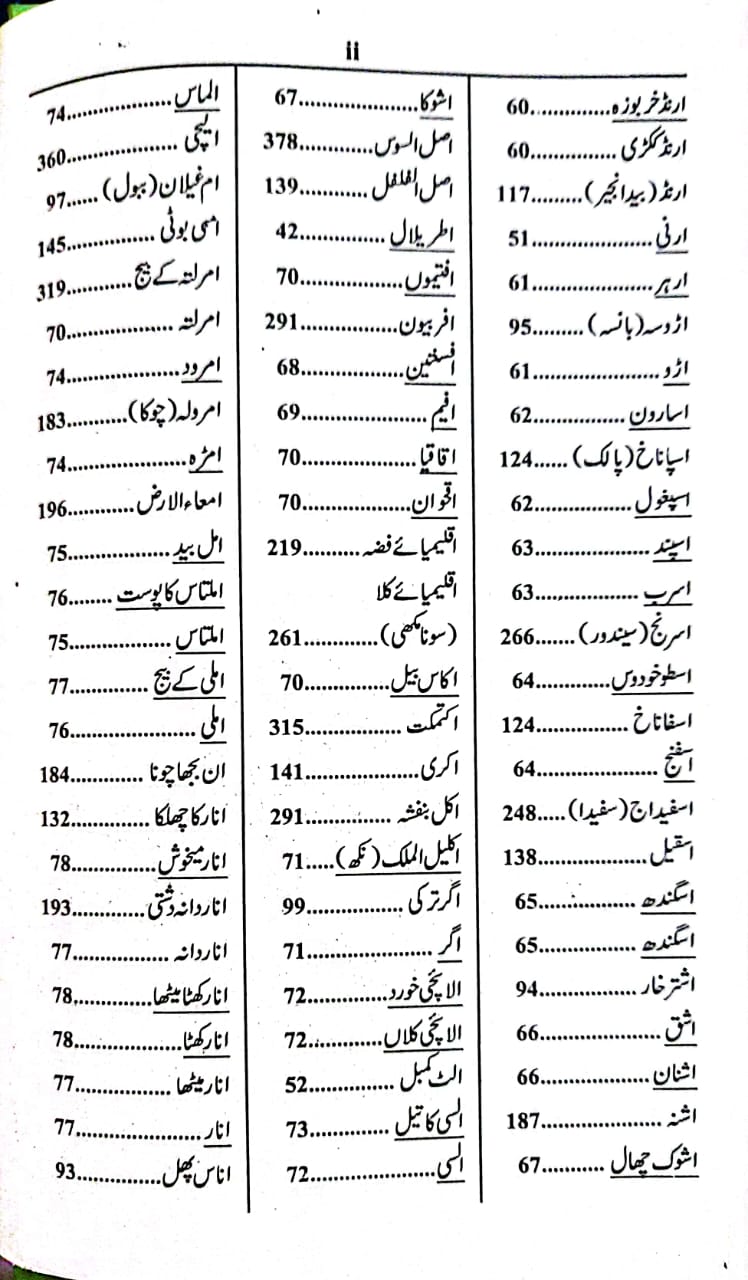 ii
ارنڈ خربوزہ.............60
ارنڈ ککڑی ..............60
ارنڈ (بیدانجیر).........117
ارنی .....................51
ارہر.....................61
اڑوسہ (بانسہ).........95
اڑو......................61
اسارون ................62
اسپاناخ (پالک) ......124
اسپغول.................62
اسپند ....................63
اسرب ..................63
اسرنج (سیندور) .......266
اسطوخودوس............64
اسفاناخ ................124
اسفنج .....................64
اسفیداج (سفیدا).....248
اسقیل...................138
اسگندھ .................65
اسگندھ .................65
اشترخار.................94
اشق .....................66
اشنان...................66
اشنہ .....................187
اشوک چھال ...........67
اشوکا.....................67
اصل السوس.............378
اصل الفلفل ............139
اطریلال ...............42
افتیموں..................70
افربیون.................291
افسنتین..................68
افیم ......................69
اقاقیا....................70
اقحوان..................70
اقلیمیائے فضہ..........219
اقلیمیائے کلا
(سونا مکھی).............261
اکاس بیل...............70
اکتمکت .................315
اکری....................141
اکل بنفشہ ...............291
اکلیل الملک (نکھ).....71
اگر ترکی .................99
اگر ......................71
الائچی خورد..............72
الائچی کلاں.............72
الٹ کمبل ...............52
السی کا تیل ..............73
السی......................72
الماس ...................74
الیچی ....................360
ام غیلان (ببول)......97
امسی بوٹی ...............145
امرلتہ کے بیج............319
امرلتہ ..................70
امرود....................74
امرولہ (چوکا)...........183
امڑہ.....................74
امعاء الارض............196
امل بید..................75
املتاس کا پوست ........76
املتاس ..................75
املی کے بیج ..............77
املی ......................76
ان بجھا چونا ............184
انار کا چھلکا ..............132
انار میخوش...............78
انار دانہ دشتی.............193
انار دانہ .................77
انار کھٹا میٹھا..............78
انار کھٹا...................78
انار میٹھا .................77
انار ......................77
انناس پھل...............93